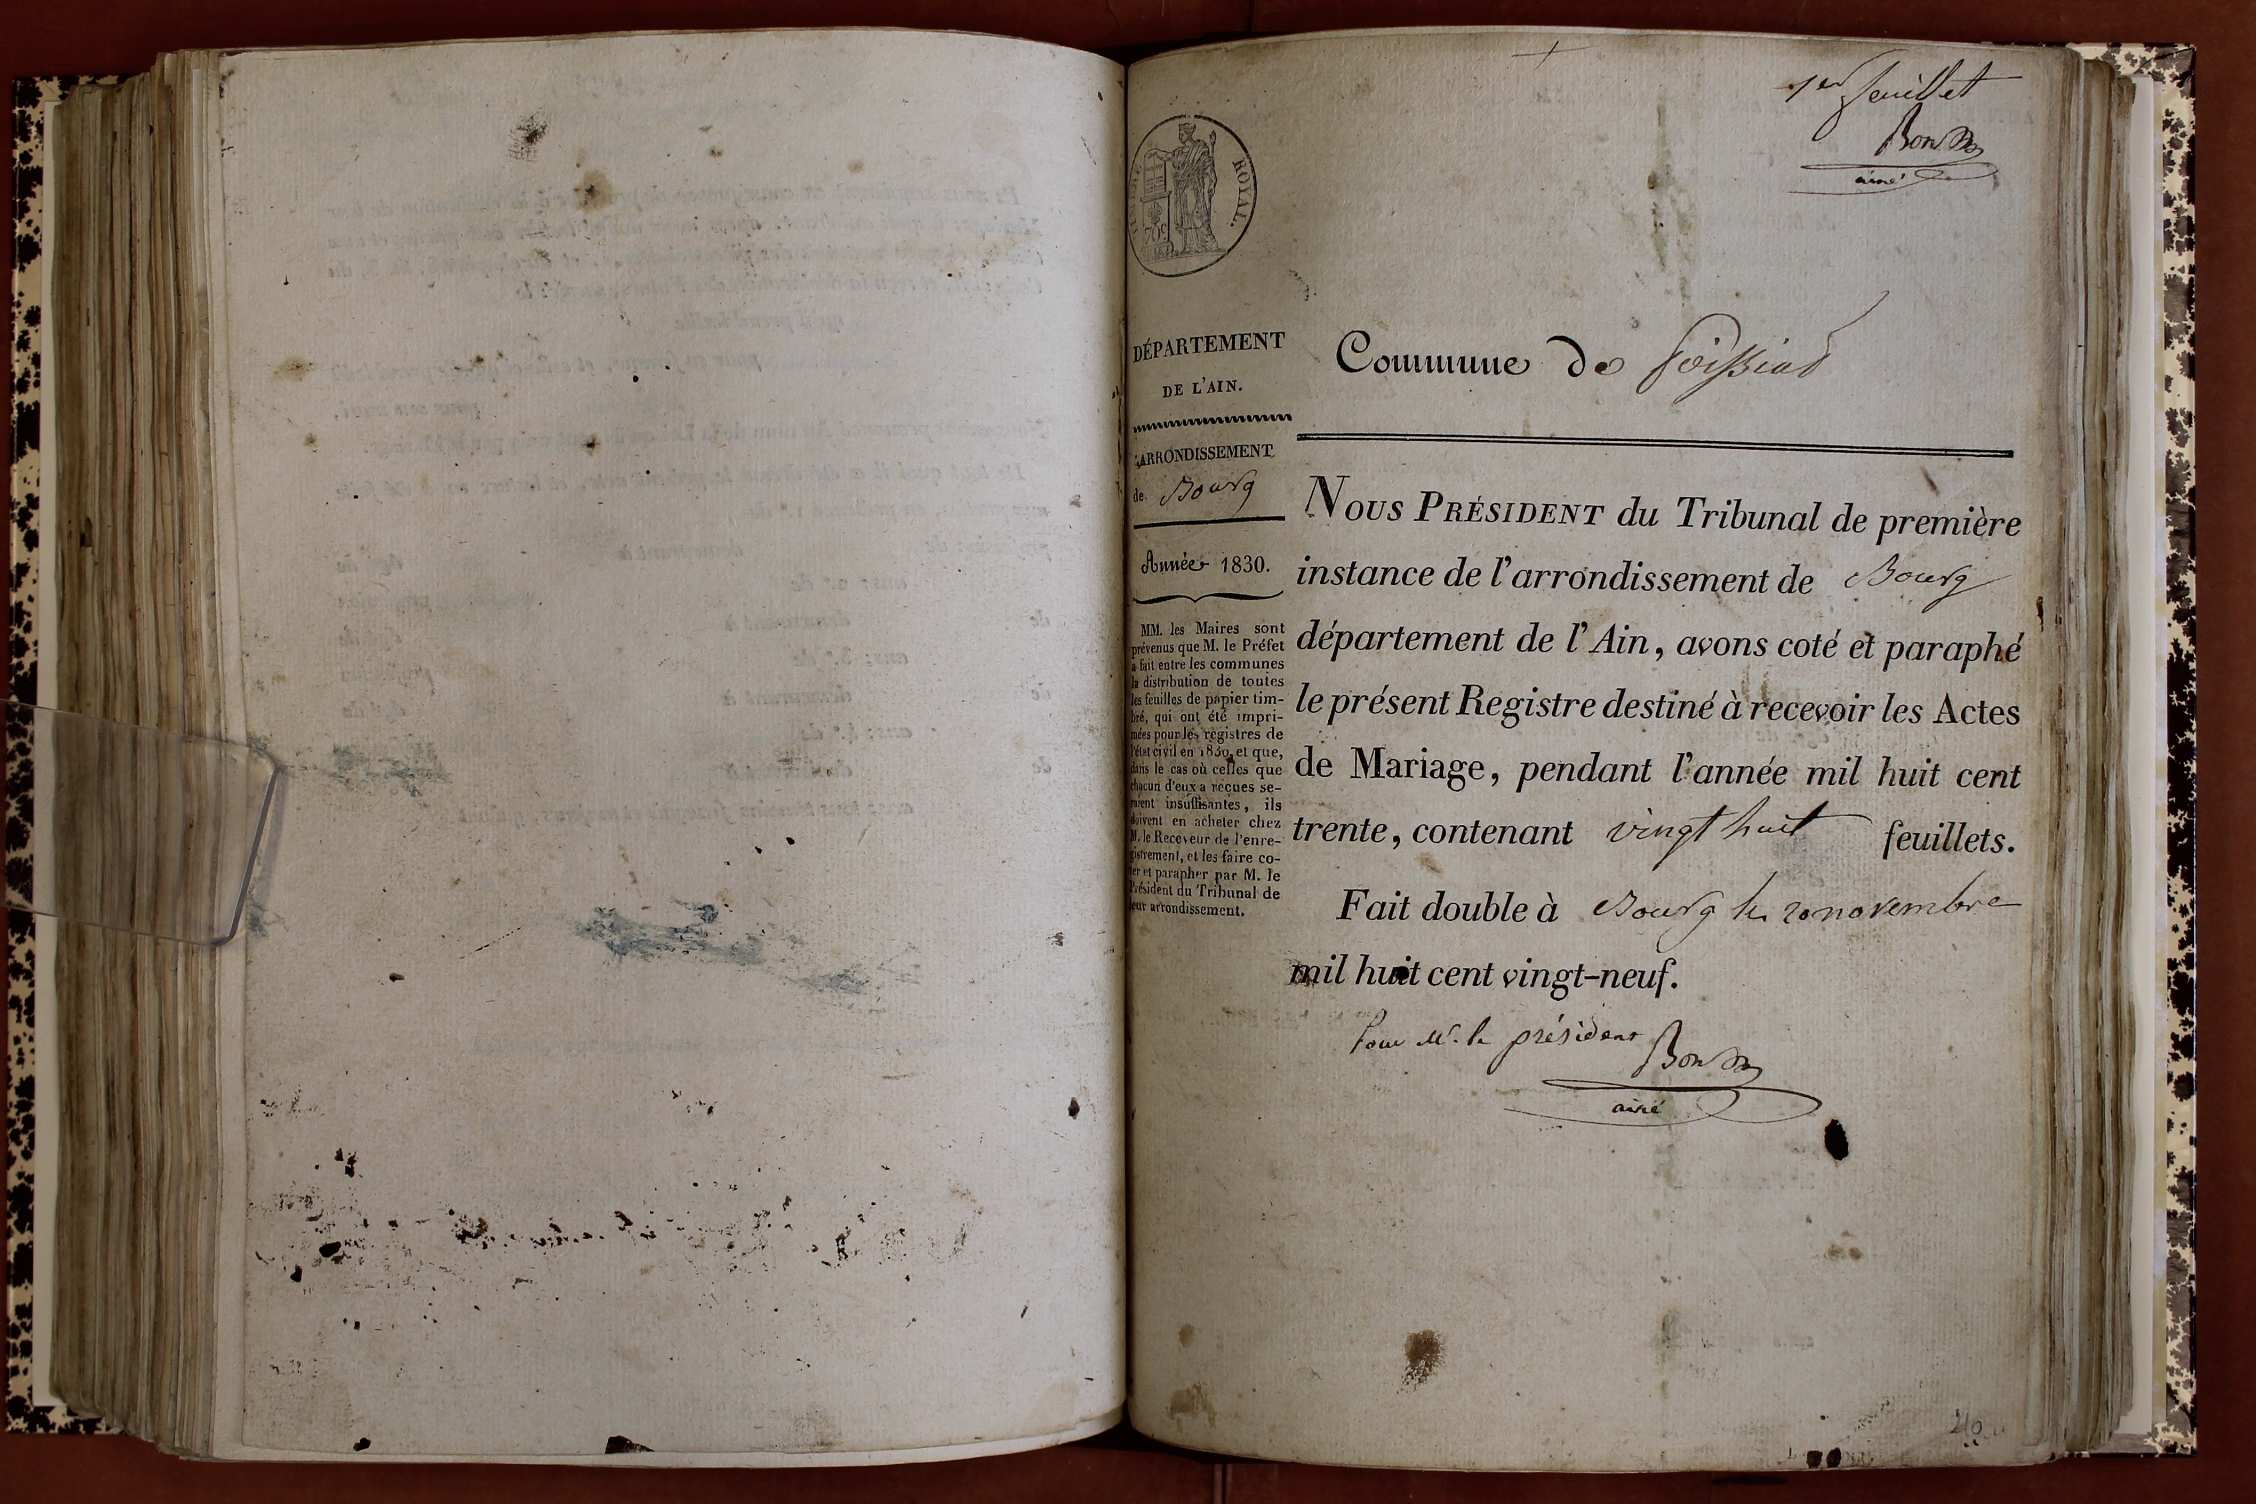 1er feuillet
aîné
ROYAL.
70c
DÉPARTEMENT
DE L'AIN.
ARRONDISSEMENT
de Bourg
Année 1830.
MM. les Maires sont
prévenus que M. le Préfet
a fait entre les communes
la distribution de toutes
les feuilles de papier tim-
bré, qui ont été impri-
mées pour les registres de
l'état civil en 1830, et que,
dans le cas où celles que
chacun d'eux a reçues se-
raient insuffisantes, ils
doivent en acheter chez
M. le Receveur de l'enre-
gistrement, et les faire co-
ter et parapher par M. le
Président du Tribunal de
leur arrondissement.
Commune de
NOUS PRÉSIDENT du Tribunal de première
instance de l'arrondissement de Bourg
département de l'Ain, avons coté et paraphé
le présent Registre destiné à recevoir les Actes
de Mariage, pendant l'année mil huit cent
trente, contenant vingt huit feuillets.
Fait double à Bourg le 20 novembre
mil huit cent vingt-neuf.
Pour Mr. le président
aîné